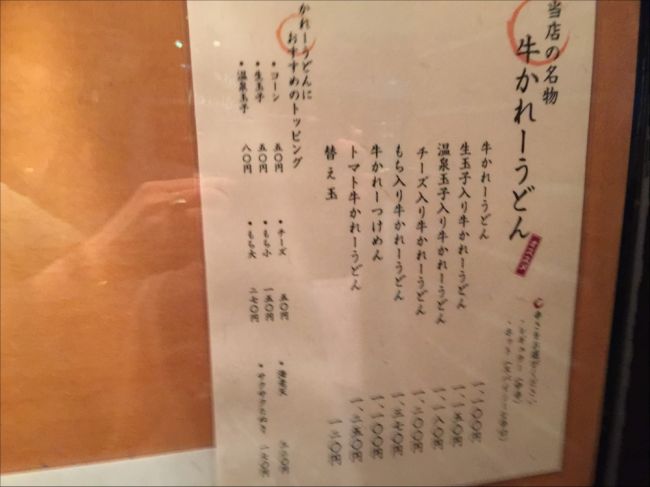 当店の名物
牛かれーうどん
牛かれーうどん 一、一〇〇円
生玉子入り牛かれーうどん 一、一五〇円
温泉玉子入り牛かれーうどん 一、一八〇円
チーズ入り牛かれーうどん 一、二〇〇円
もち入り牛かれーうどん 一、三七〇円
牛かれーつけめん 一、一〇〇円
トマト牛かれーうどん 一、三五〇円
替え玉 一三〇円
かれーうどんに
おすすめのトッピング
・コーン 五〇円
・生玉子 五〇円
・温泉玉子 八〇円
・チーズ 五〇円
・もち小 一五〇円
・もち大 二七〇円
・海老天